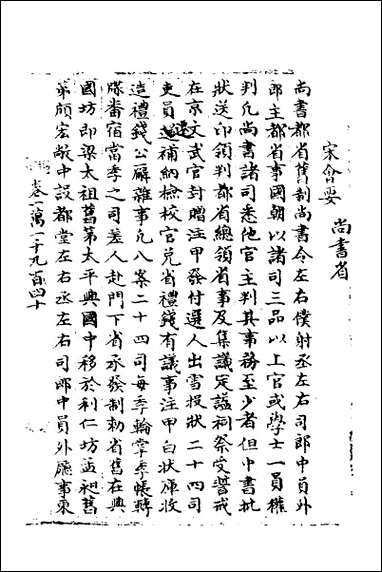 宋會要
尚書省
尚書都省舊制尚書令左右僕射丞左右司郎中員外
郎主都省事國朝以諸司三品以上官或學士一員權
判凡尚書諸司悉他官主判其事務至少者但中書批
狀送印領判都省總領省事及集議定謚祠祭受誓戒
在京文武官封贈注甲發付選人出雪投狀二十四司
吏員遞補納檢校官兑省禮錢有議事注甲白狀庫收
造禮錢公廨雜事凡八案二十四司每季輪掌季帳轉
隊番宿當季之司差人赴門下省承發制勑省舊在興
國坊即梁太祖舊第太平興國中移於利仁坊孟昶舊
第頗宏敞中設都堂左右丞左右司郎中員外廳事東
卷一萬一千九百四十